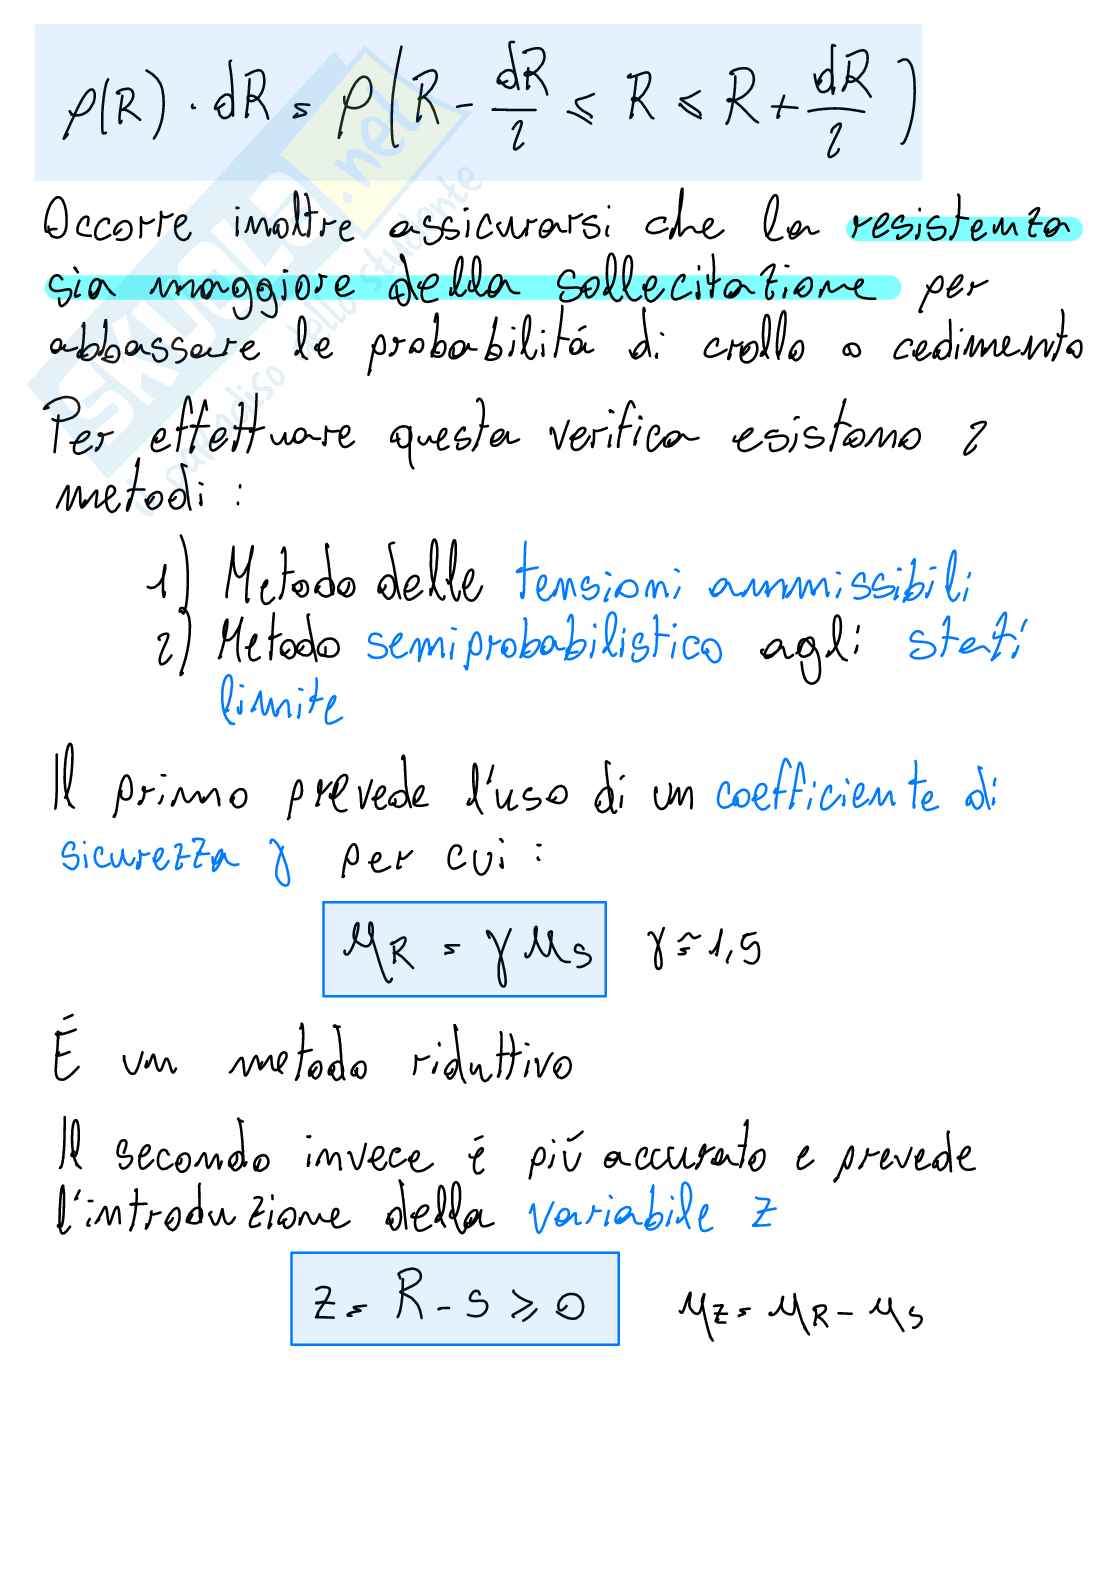 ρ(R) · dR = P(R - dR/2 ≤ R ≤ R + dR/2)
Occorre inoltre assicurarsi che la resistenza
sia maggiore della sollecitazione per
abbassare le probabilitá di crollo o cedimento
Per effettuare questa verifica esistono 2
metodi :
1) Metodo delle tensioni ammissibili
2) Metodo semiprobabilistico agli stati
limite
Il primo prevede l'uso di un coefficiente di
sicurezza γ per cui :
μR = γ μs γ ≈ 1,5
É un metodo riduttivo
Il secondo invece é piú accurato e prevede
l'introduzione della variabile z
z = R - s ≥ 0 μz = μR - μs
SKUOLA.net
paradiso dello studente